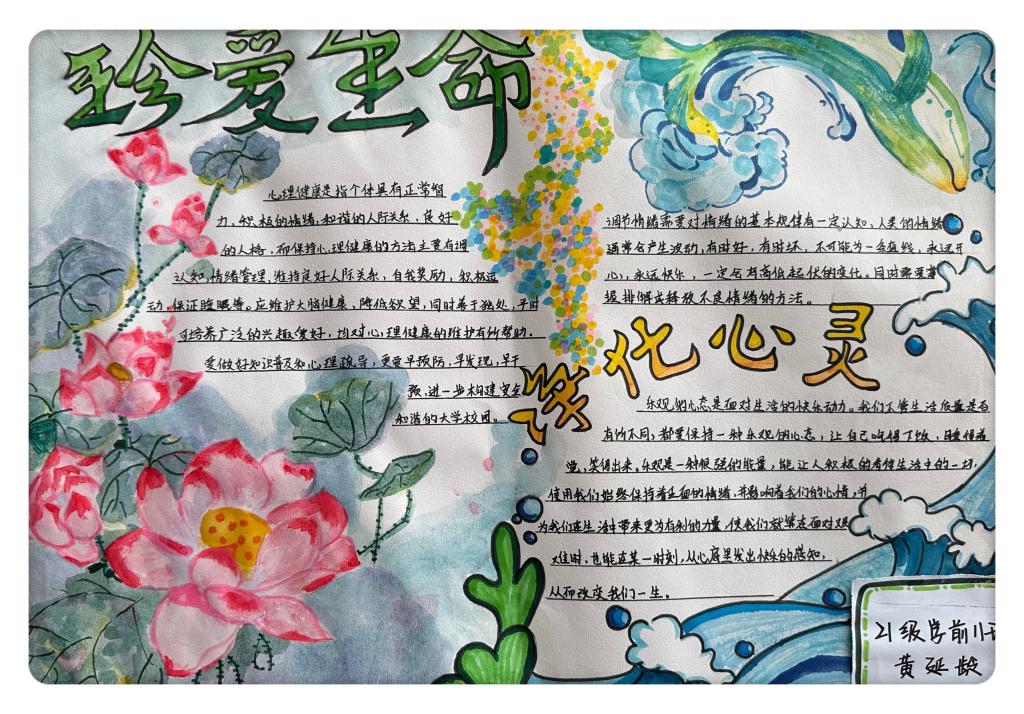 珍爱生命
心理健康是指个体具有正常智
力、积极的情绪、和谐的人际关系、良好
的人格,而保持心理健康的方法主要有调
认知,情绪管理,维持良好人际关系,自我奖励,积极运
动,保证睡眠等。应维护大脑健康,降低欲望,同时善于独处,平时
可培养广泛的兴趣爱好,均对心理健康的维护有所帮助。
要做好知识普及和心理疏导,更要早预防,早发现,早干
预,进一步构建安全
和谐的大学校园。
调节情绪需要对情绪的基本规律有一定认知,人类的情绪
通常会产生波动,有时好,有时坏,不可能为一条直线,永远开
心,永远快乐,一定会有高低起伏的变化。同时需要掌
握排解出释放不良情绪的方法。
净化心灵
乐观的心态是面对生活的快乐动力。我们不管生活质量是否
有所不同,都要保持一种乐观的心态,让自己吃得下饭,睡得着
觉,笑得出来,乐观是一种很强的能量,能让人积极的看待生活中的一切,
使用我们始终保持着正面的情绪,并影响着我们的心情,并
为我们在生活中带来更为有利的力量,使我们就算在面对艰
难时,也能在某一时刻,从心底里发出快乐的感知,
从而改变我们一生。
21级学前11
黄延龄